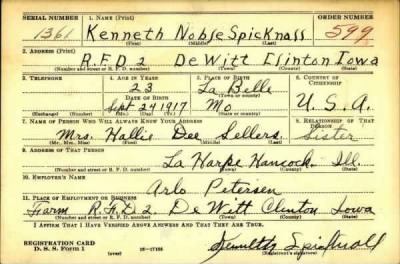 SERIAL NUMBER 1. NAME (Print) ORDER NUMBER
1361 Kenneth Noble Spicknall 599
(First) (Middle) (Last)
2. ADDRESS (Print)
R.F.D 2 DeWitt Clinton Iowa
(Number and street or R. F. D. number) (Town) (County) (State)
3. TELEPHONE 4. AGE IN YEARS 5. PLACE OF BIRTH 6. COUNTRY OF CITIZENSHIP
23 La Belle
DATE OF BIRTH (Town or county)
Sept 24 1917 Mo U.S.A.
(Exchange) (Number) (Mo.) (Day) (Yr.) (State or country)
7. NAME OF PERSON WHO WILL ALWAYS KNOW YOUR ADDRESS 8. RELATIONSHIP OF THAT PERSON
Mrs. Hallie Dee Sellers Sister
(Mr., Mrs., Miss) (First) (Middle) (Last)
9. ADDRESS OF THAT PERSON
La Harpe Hancock Ill.
(Number and street or R. F. D. number) (Town) (County) (State)
10. EMPLOYER'S NAME
Arlo Petersen
11. PLACE OF EMPLOYMENT OR BUSINESS
Farm R.F.D 2 DeWitt Clinton Iowa
(Number and street or R. F. D. number) (Town) (County) (State)
I AFFIRM THAT I HAVE VERIFIED ABOVE ANSWERS AND THAT THEY ARE TRUE.
REGISTRATION CARD
D. S. S. FORM 1 (over) Kenneth Spicknall
(Registrant's signature)